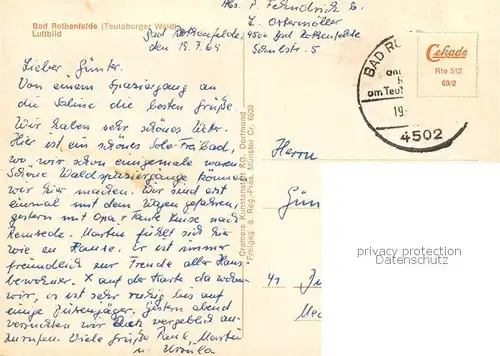 Bad Rothenfelde (Teutoburger Wald)
Luftbild
Abs. P. Fehndrich b.
L. Ostermöller
4502 Bad Rothenfelde
Schulstr. 5
Bad Rothenfelde,
den 19.7.69
Lieber Günter.
Von einem Spaziergang an
die Saline die besten Grüße.
Wir haben sehr schönes Wetter.
Hier ist ein schönes Sole-Freibad,
wo wir schon einige male waren.
Schöne Waldspaziergänge können
wir hier machen. Wir sind erst
einmal mit dem Wagen gefahren,
gestern mit Opa + Tante nach
Remsede. Martin fühlt sich hier
wie zu Hause. Er ist immer
freundlich zur Freude aller Haus-
bewohner. X auf der Karte da wohnen
wir, es ist sehr ruhig bis auf
einige Düsenjäger. Gestern abend
versuchten wir Dich vergeblich an-
zurufen. Viele Grüße Martin
u. Ursula
Cramers Kunstanstalt KG, Dortmund
Freigeg. d. Reg. Präs. Münster Cr. 6293
BAD RO
am Teut
19.
4502
Cekade
Rte 512
69/2
Herrn
Gün
41
privacy protection
Datenschutz